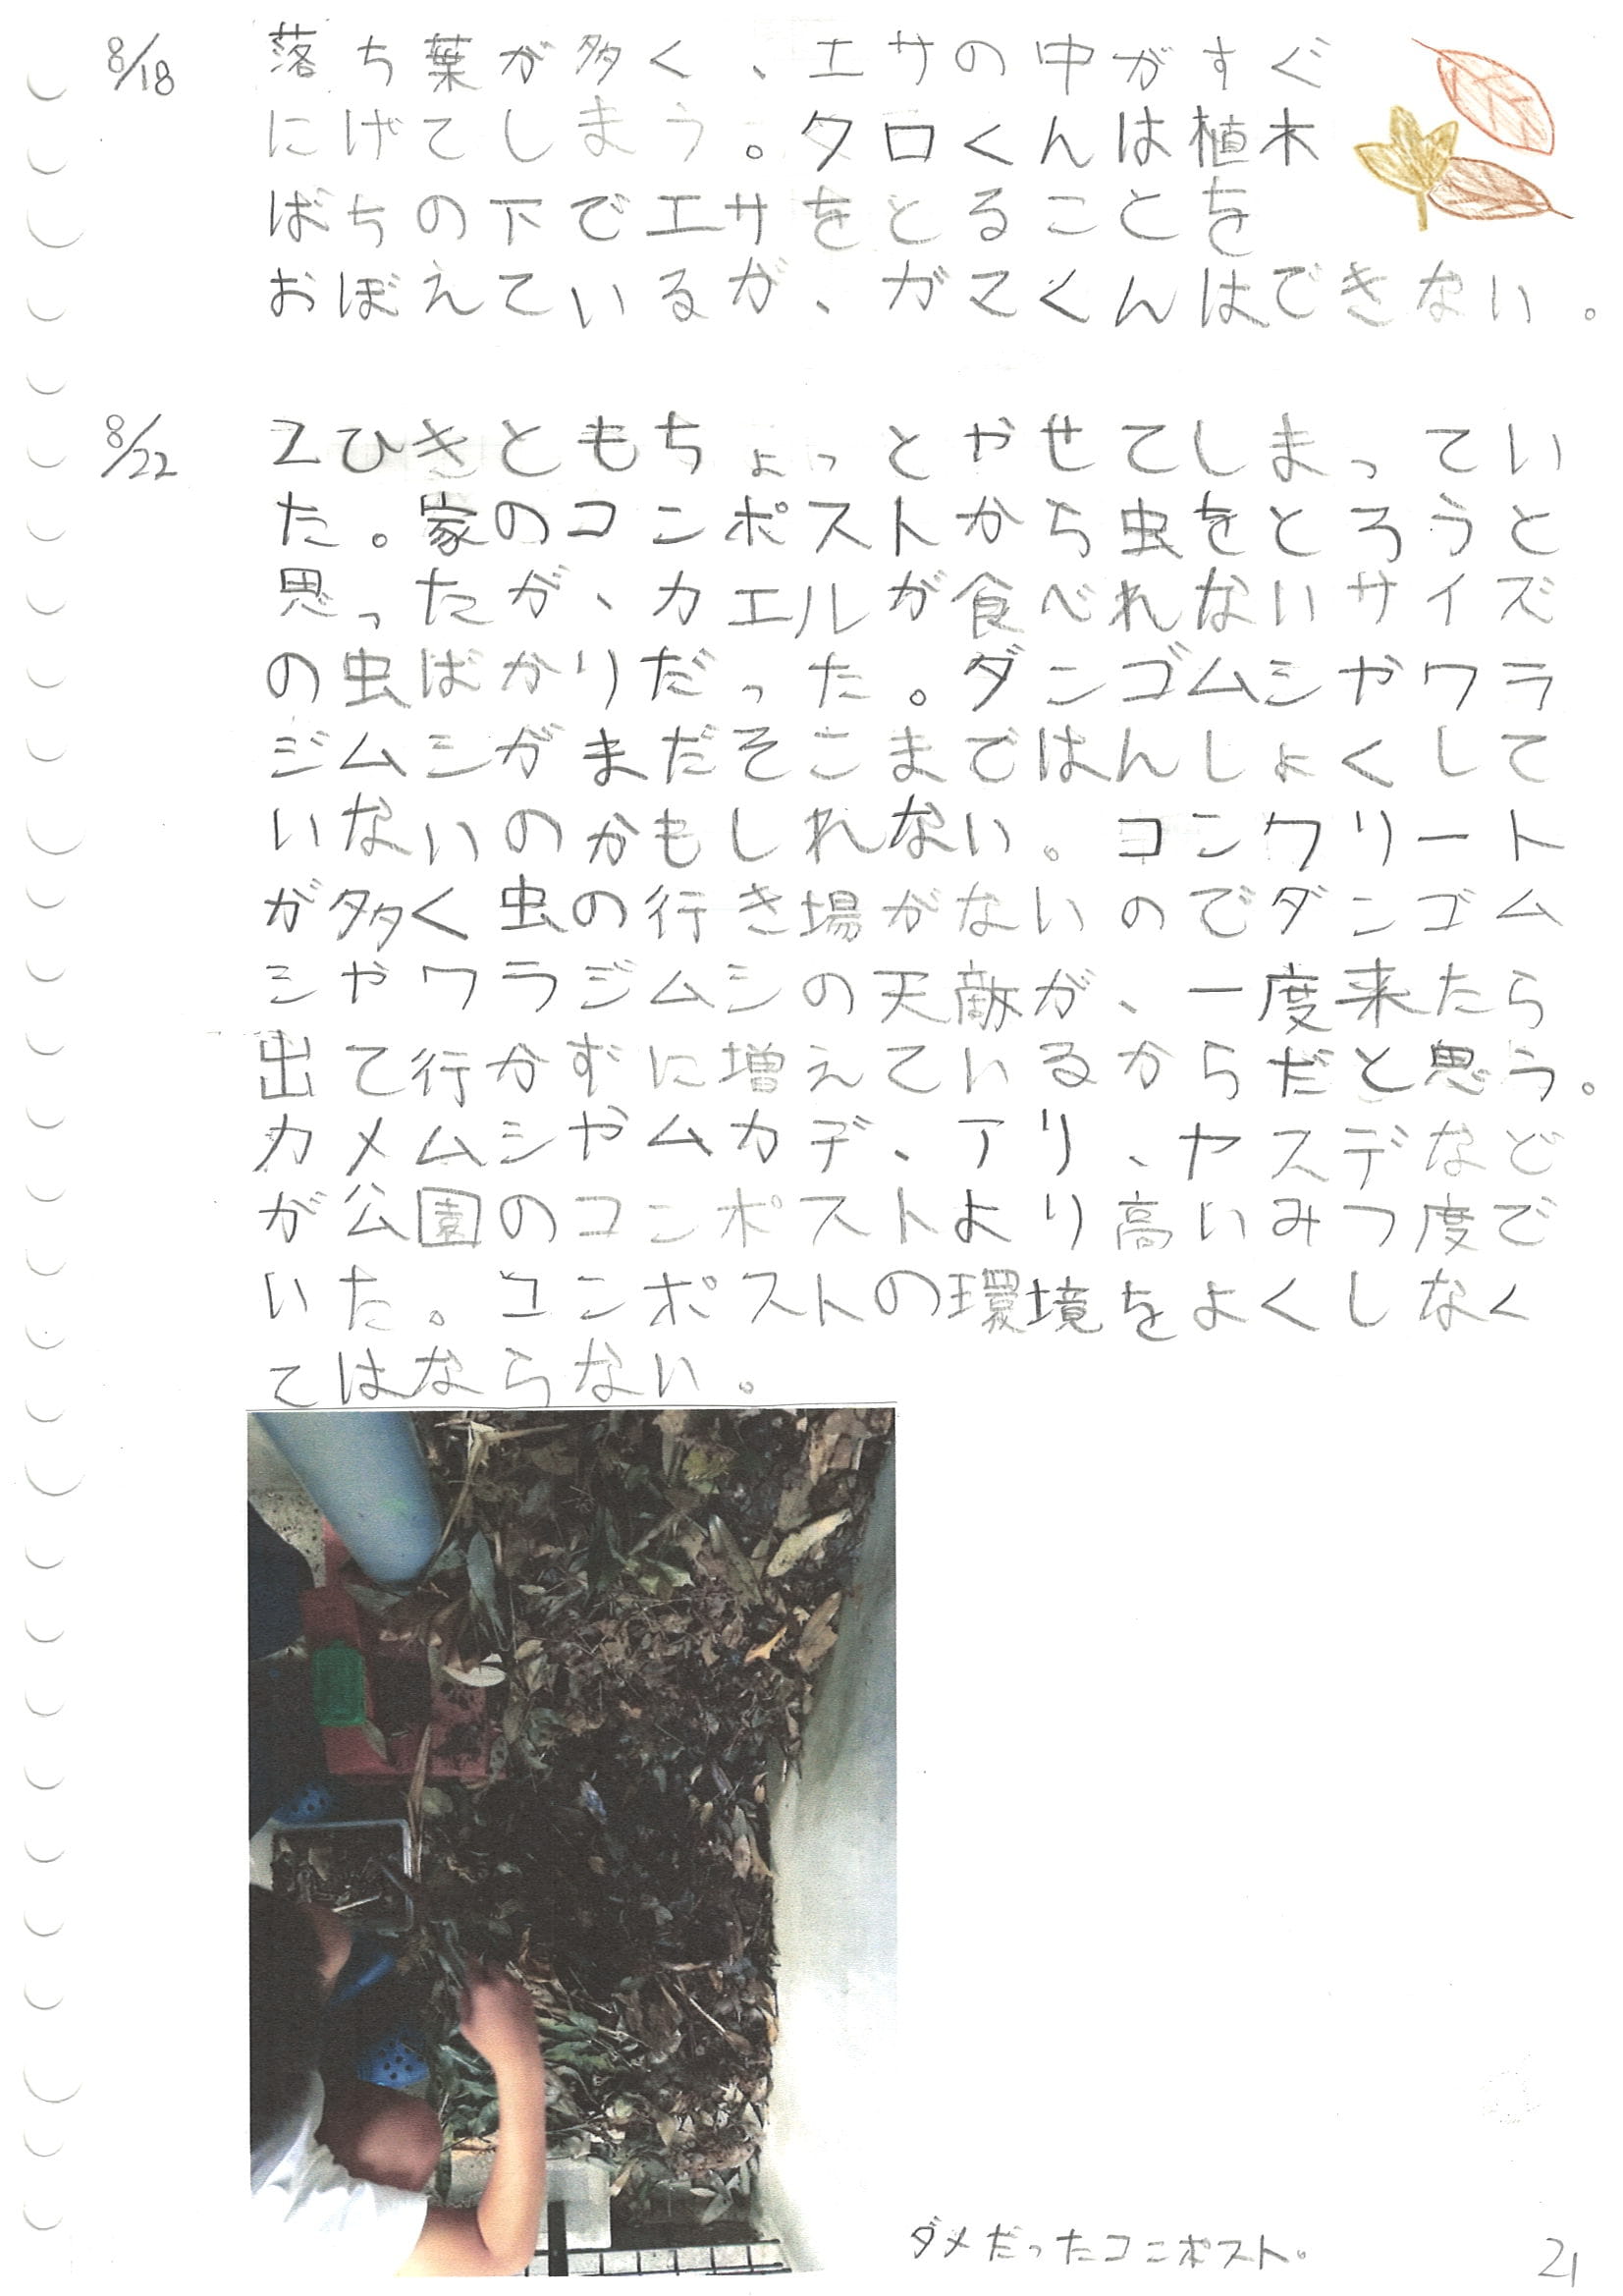 8/18 落ち葉が多く、エサの中がすぐ
にげてしまう。タロくんは植木
ばちの下でエサをとることを
おぼえているが、ガマくんはできない。
8/22 2ひきともちょっとやせてしまってい
た。家のコンポストから虫をとろうと
思ったが、カエルが食べれないサイズ
の虫ばかりだった。ダンゴムシやワラ
ジムシがまだそこまではんしょくして
いないのかもしれない。コンクリート
が多く虫の行き場がないのでダンゴム
シやワラジムシの天敵が、一度来たら
出て行かずに増えているからだと思う。
カメムシやムカデ、アリ、ヤスデなど
が公園のコンポストより高いみつ度で
いた。コンポストの環境をよくしなく
てはならない。
ダメだったコンポスト。
21